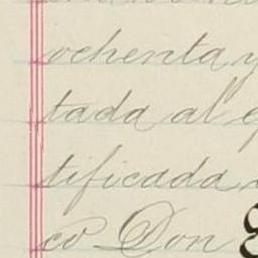 ochenta y
tada al
tificada
co Don